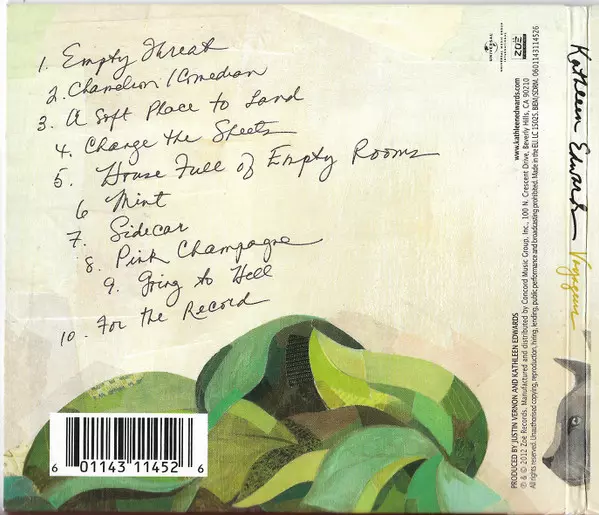 1. Empty Threat
2. Chameleon / Comedian
3. A Soft Place to Land
4. Change the Sheets
5. House Full of Empty Rooms
6 Mint
7. Sidecar
8. Pink Champagne
9. Going to Hell
10. For the Record
6 01143 11452 6
UNIVERSAL
UNIVERSAL MUSIC GROUP
ZOË
PRODUCED BY JUSTIN VERNON AND KATHLEEN EDWARDS
www.kathleenedwards.com
℗ & © 2012 Zoë Records. Manufactured and distributed by Concord Music Group, Inc., 100 N. Crescent Drive, Beverly Hills, CA 90210
All rights reserved. Unauthorised copying, reproduction, hiring, lending, public performance and broadcasting prohibited. Made in the EU. LC 15025. BIEM/SDRM. 0601143114526
Kathleen Edwards Voyageur